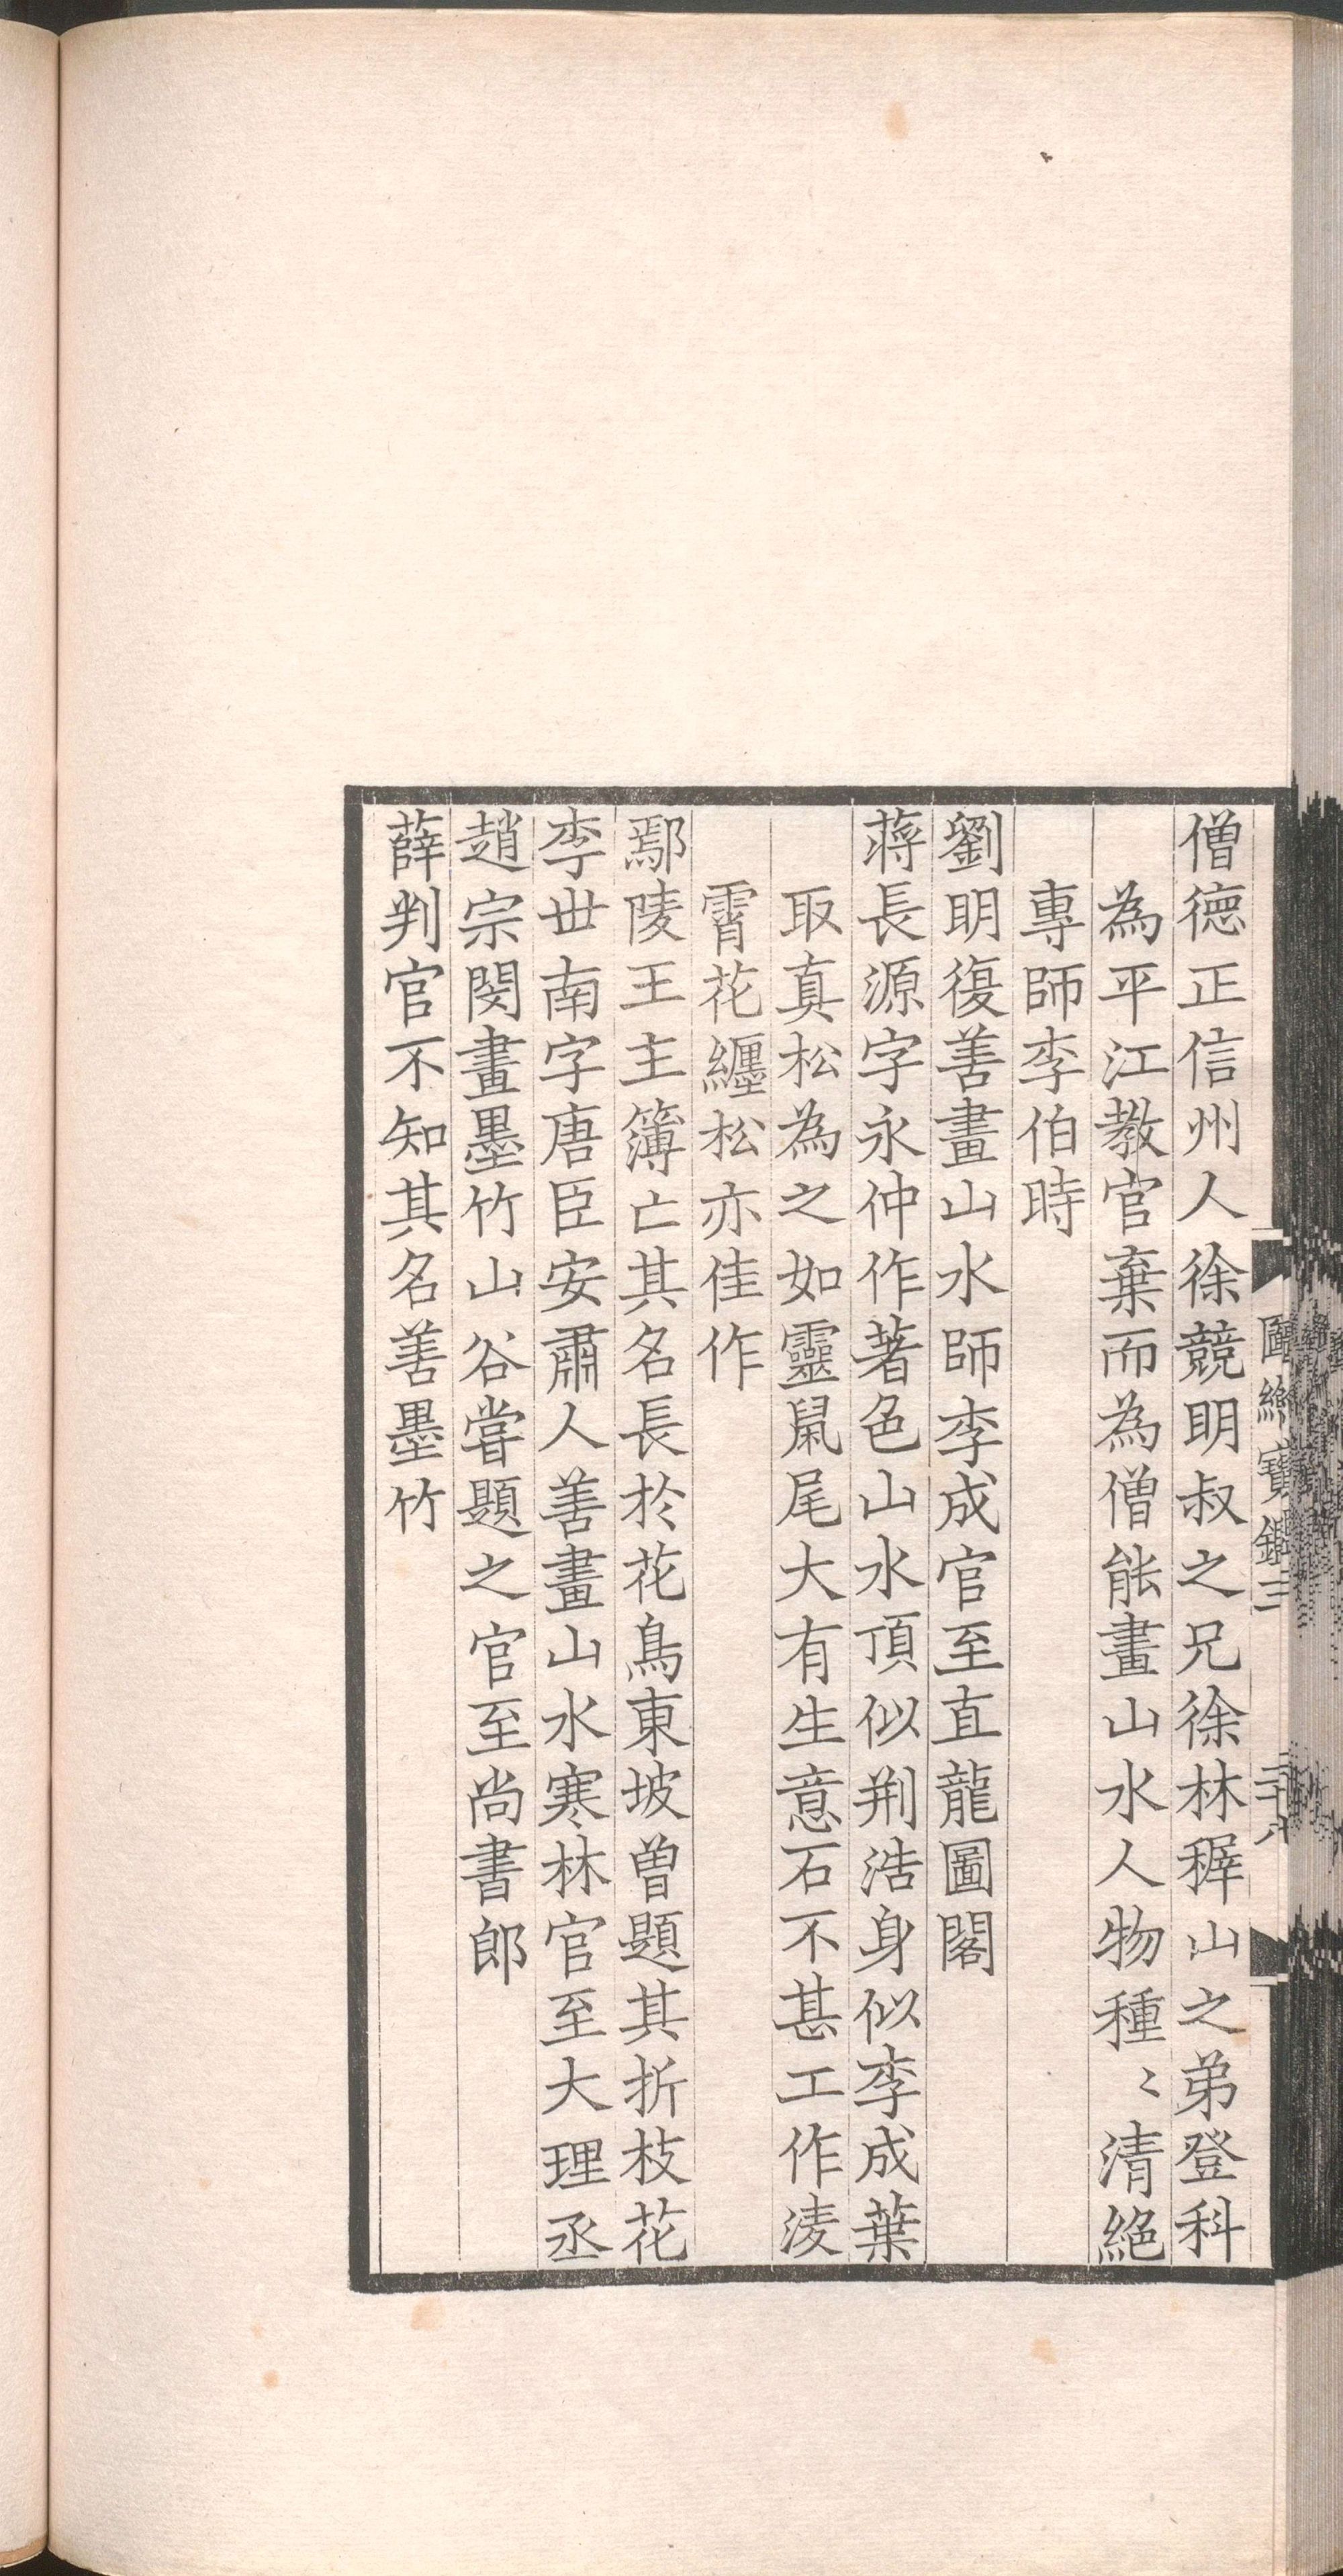 僧德正信州人徐競明叔之兄徐林穉山之弟登科
為平江教官棄而為僧能畫山水人物種〻清絕
專師李伯時
劉明復善畫山水師李成官至直龍圖閣
蔣長源字永仲作著色山水頂似荆浩身似李成葉
取真松為之如靈鼠尾大有生意石不甚工作淩
霄花纏松亦佳作
鄢陵王主簿亡其名長於花鳥東坡曾題其折枝花
李世南字唐臣安肅人善畫山水寒林官至大理丞
趙宗閔畫墨竹山谷嘗題之官至尚書郎
薛判官不知其名善墨竹
圖繪寶鑑三